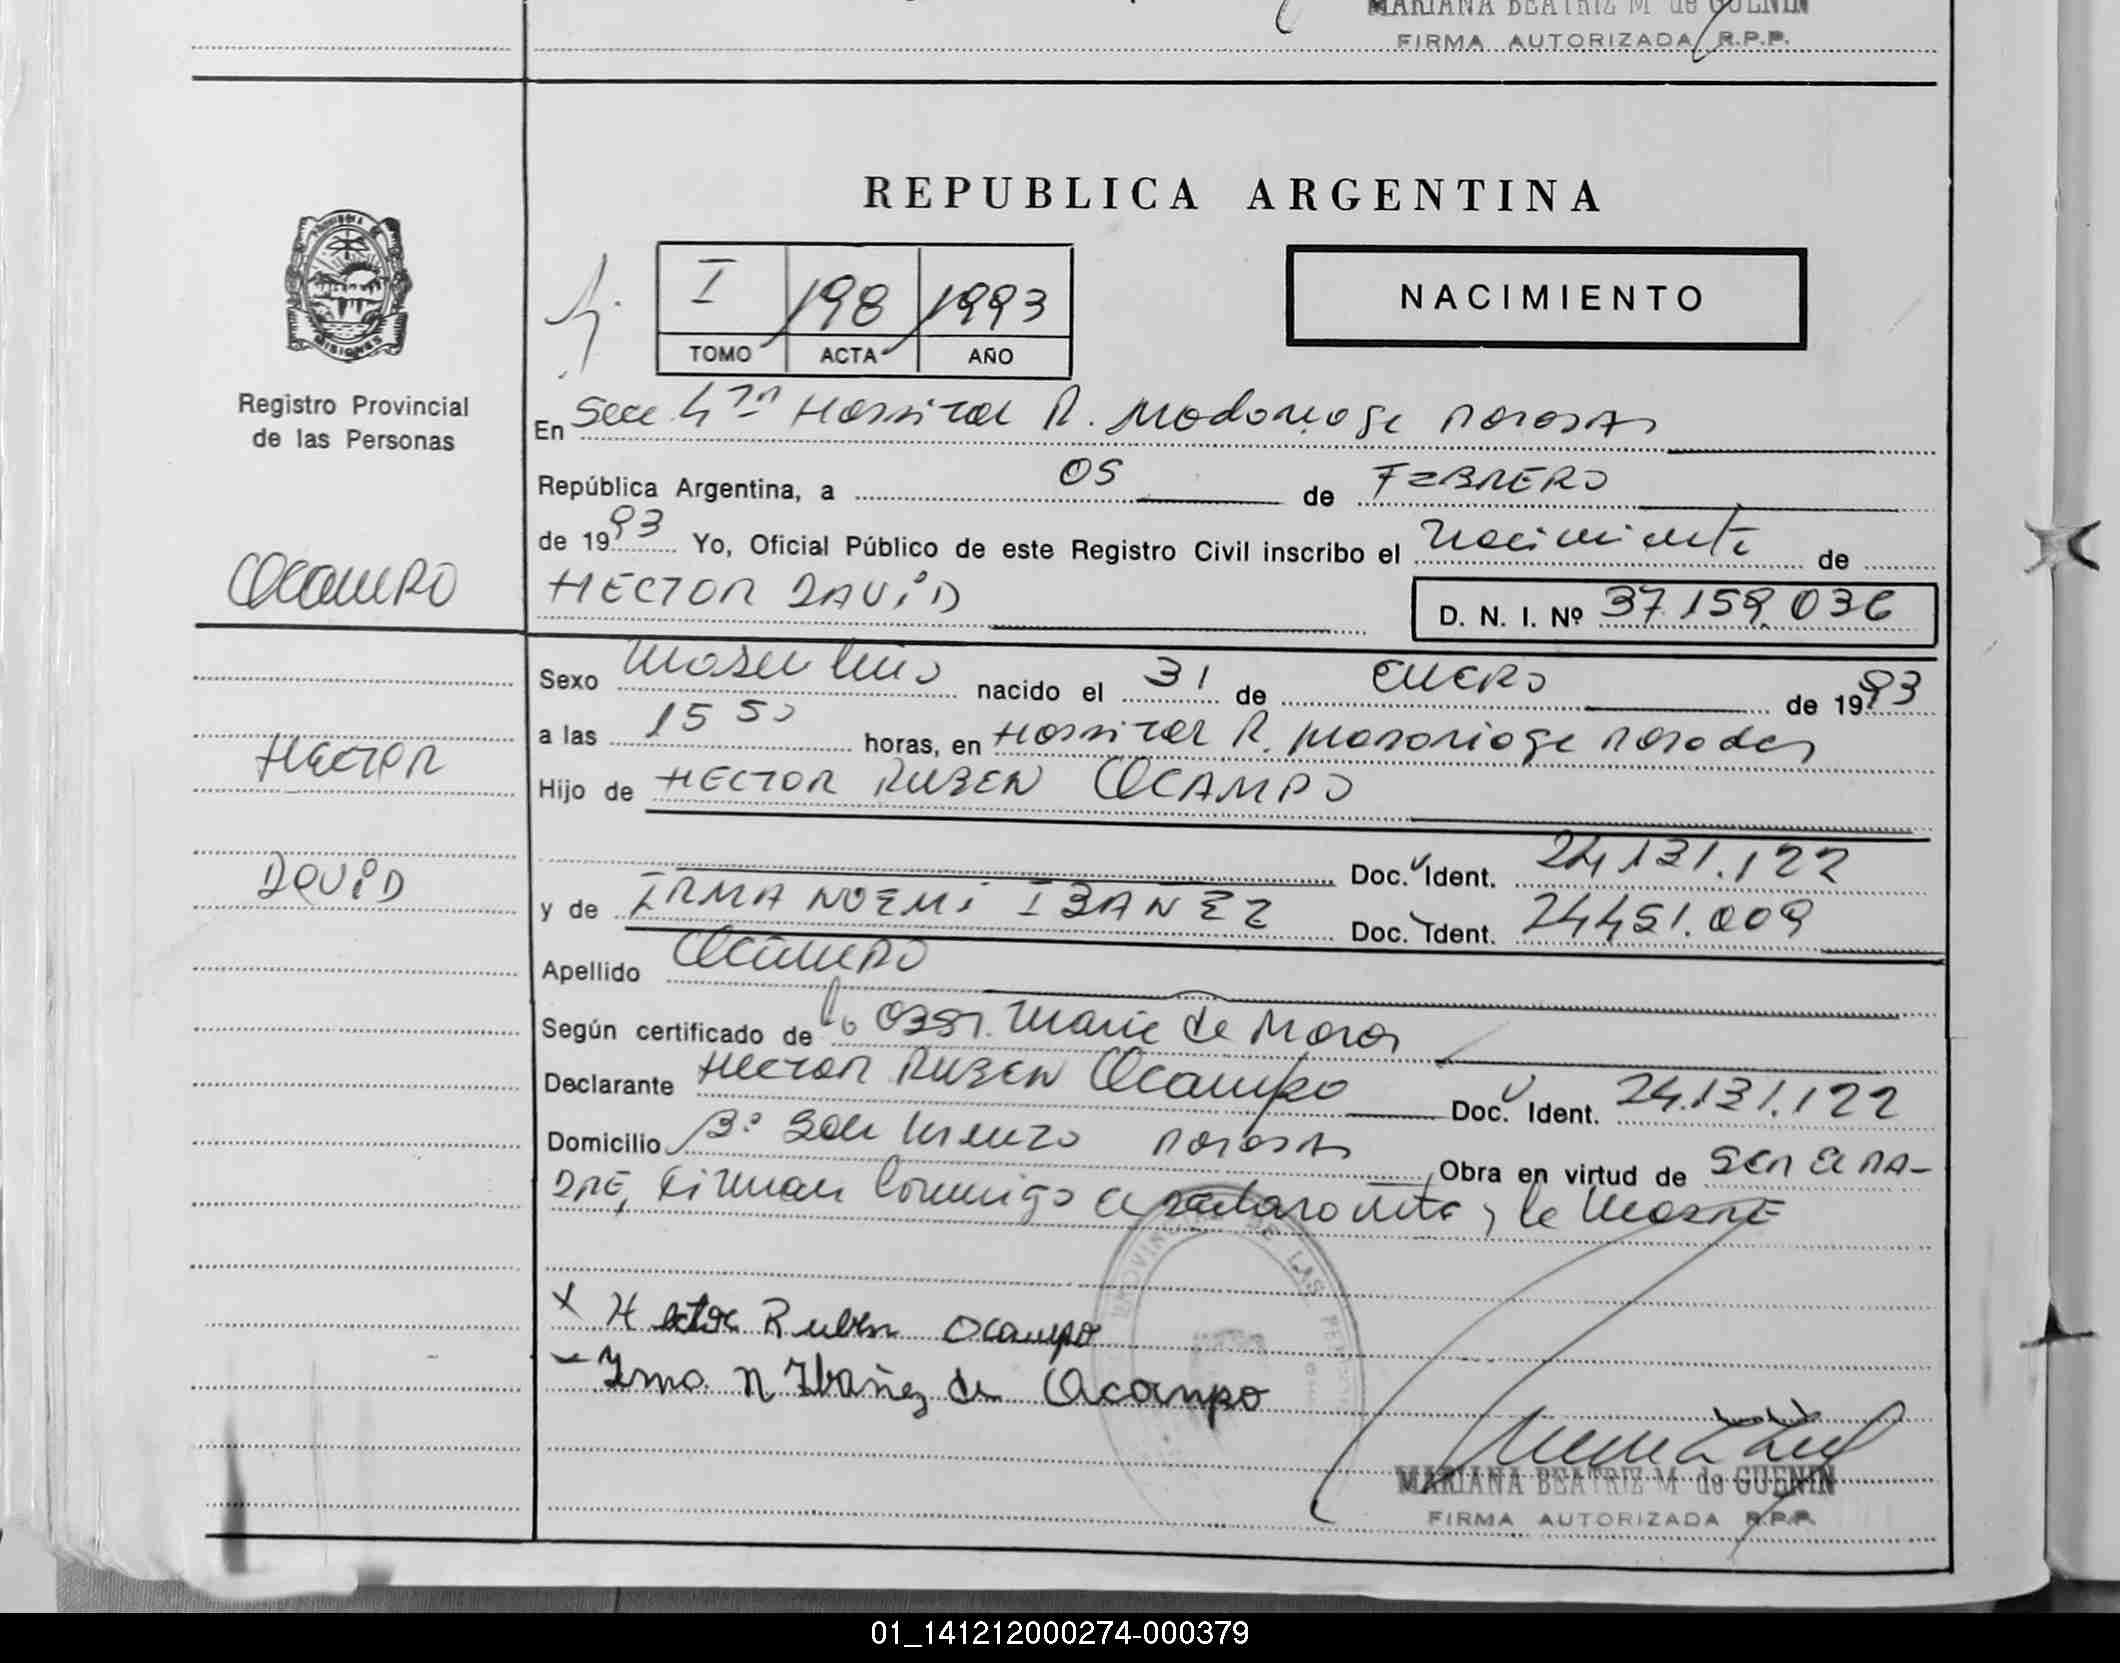 MARIANA BEATRIZ M de GUENIN
FIRMA AUTORIZADA R.P.P.
REPUBLICA ARGENTINA
MISIONES
Registro Provincial
de las Personas
I 198 1993
TOMO ACTA AÑO
NACIMIENTO
En Secc 4ta Hospital R. Madariaga Posadas
República Argentina, a 05 de FEBRERO
de 1993 Yo, Oficial Público de este Registro Civil inscribo el Nacimiento de
OCAMPO
HECTOR DAVID
D. N. I. Nº 37.159.036
Sexo Masculino nacido el 31 de ENERO de 1993
a las 15 50 horas, en Hospital R. Madariaga Posadas
HECTOR
Hijo de HECTOR RUBEN OCAMPO
Doc. Ident. 24.131.122
DAVID
y de IRMA NOEMI IBAÑEZ Doc. Ident. 24.451.009
Apellido OCAMPO
Según certificado de la Obst. Marie de Mora
Declarante HECTOR RUBEN Ocampo Doc. Ident. 24.131.122
Domicilio Bº San Lorenzo POSADAS Obra en virtud de SER EL PA-
DRE, Firman Conmigo el declarante y la MADRE
PROVINCIAL DE LAS PERSONAS
x Hector Ruben Ocampo
Irma N Ibañez de Ocampo
MARIANA BEATRIZ M de GUENIN
FIRMA AUTORIZADA R.P.P.
01_141212000274-000379